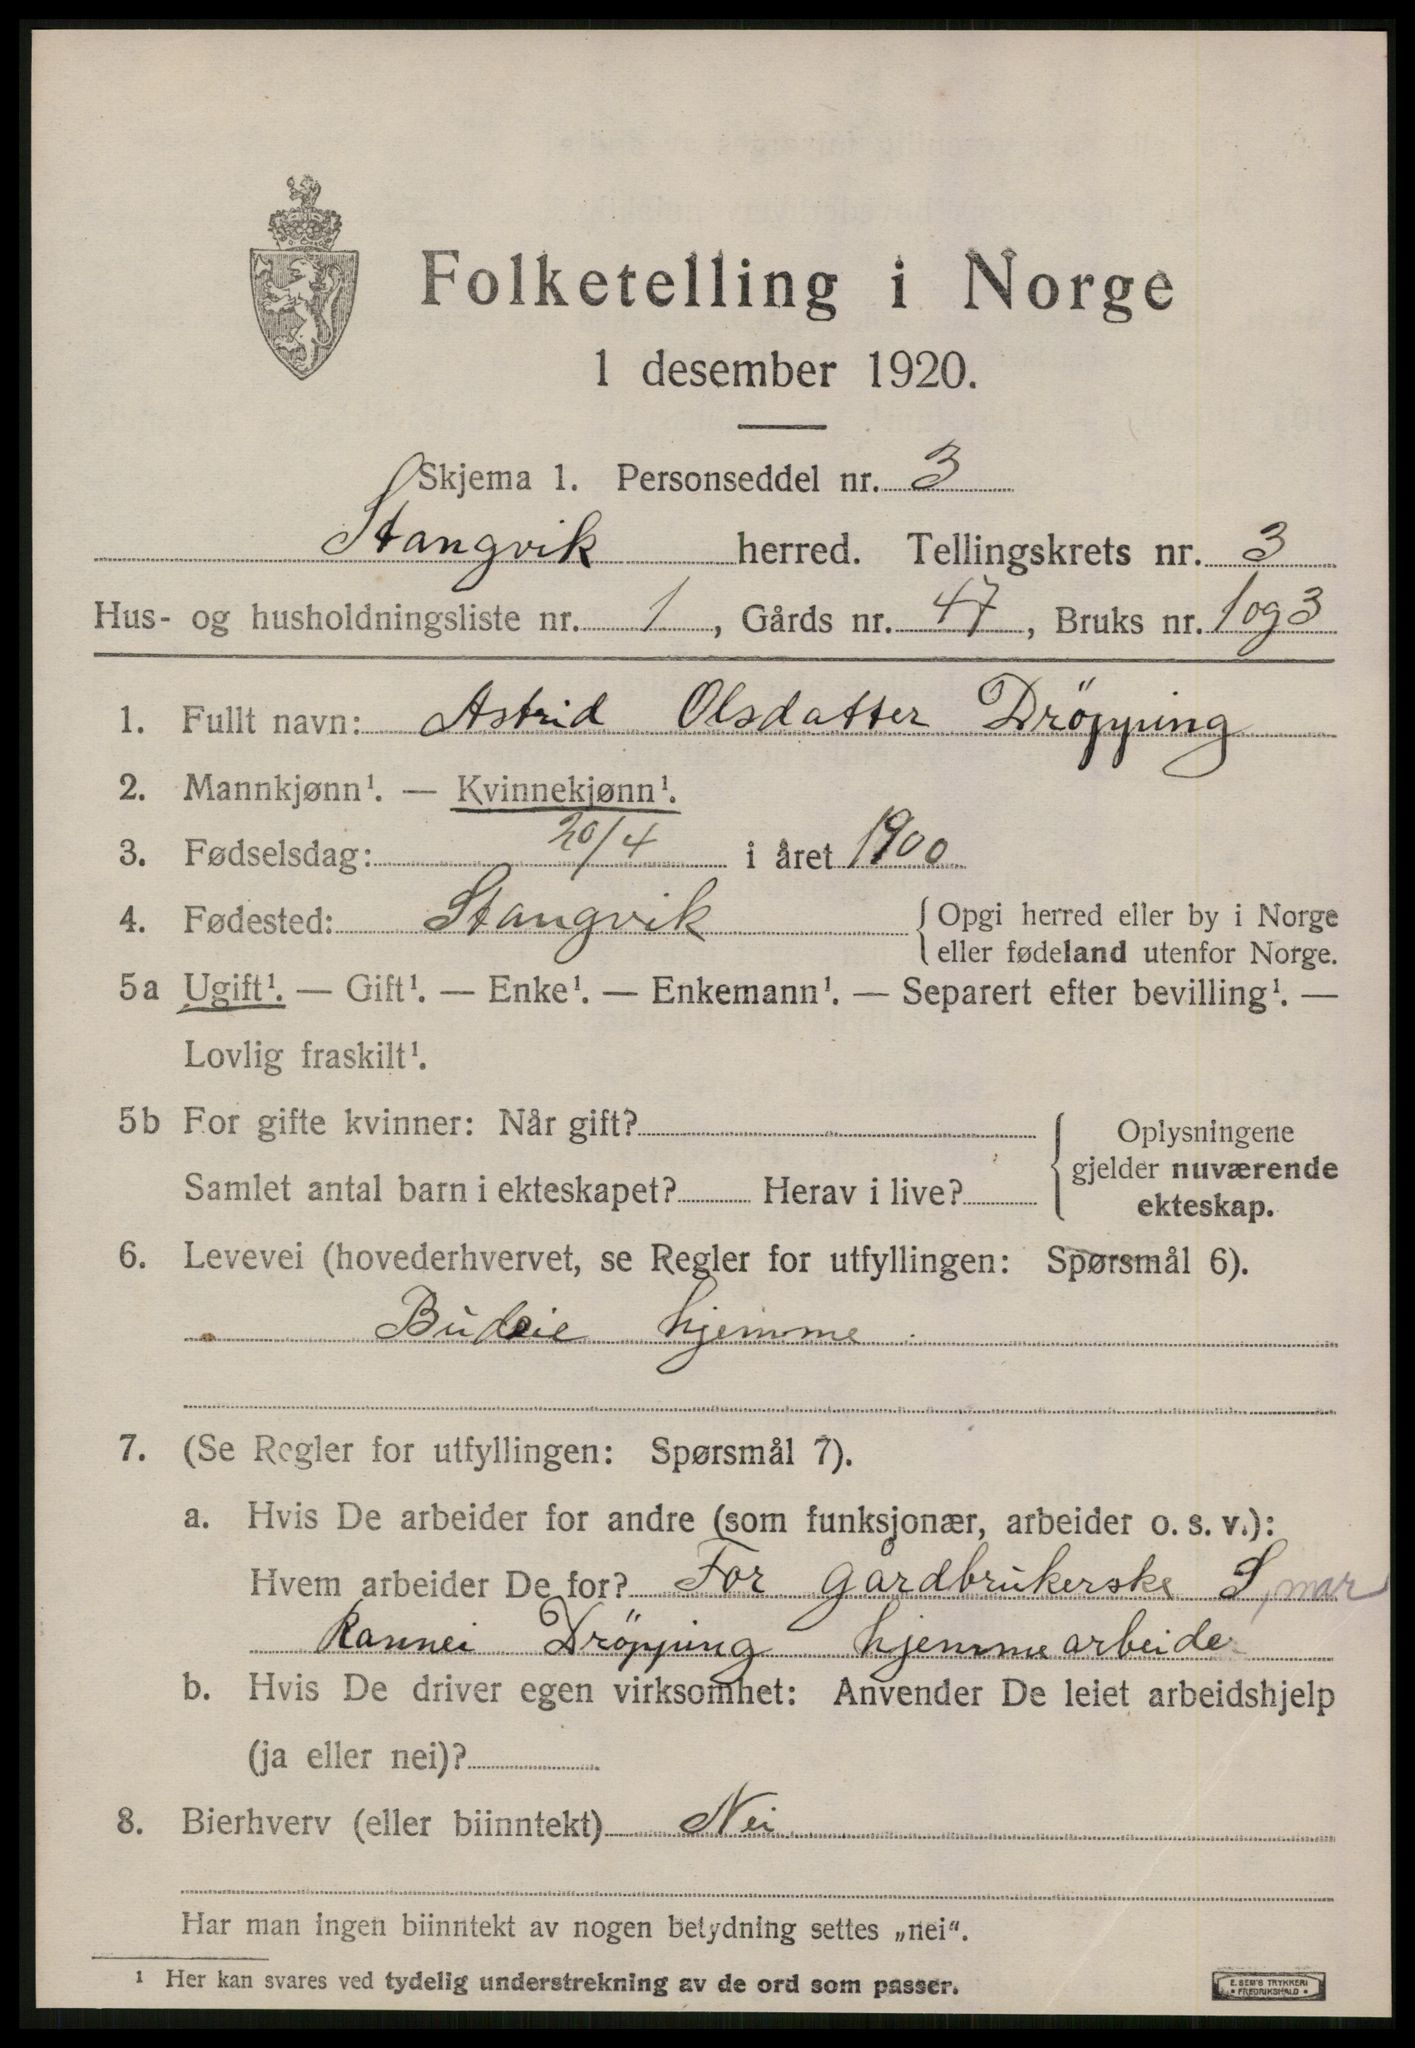 Folketelling i Norge
1 desember 1920.
Skjema 1. Personseddel nr. 3
Stangvik herred. Tellingskrets nr. 3
Hus- og husholdningsliste nr. 1, Gårds nr. 47, Bruks nr. 1 og 3
1. Fullt navn: Astrid Olsdatter Dröpping
2. Mannkjønn¹. — Kvinnekjønn¹.
3. Fødselsdag: 20/4 i året 1900
4. Fødested: Stangvik { Opgi herred eller by i Norge
eller fødeland utenfor Norge.
5a Ugift¹. — Gift¹. — Enke¹. — Enkemann¹. — Separert efter bevilling¹. —
Lovlig fraskilt¹.
5b For gifte kvinner: Når gift?
Samlet antal barn i ekteskapet? Herav i live?
{ Oplysningene
gjelder nuværende
ekteskap.
6. Levevei (hovederhvervet, se Regler for utfyllingen: Spørsmål 6).
Budeie hjemme.
7. (Se Regler for utfyllingen: Spørsmål 7).
a. Hvis De arbeider for andre (som funksjonær, arbeider o. s. v.):
Hvem arbeider De for? For gårdbrukerske S, mar
Rannei Dröpping hjemmearbeide
b. Hvis De driver egen virksomhet: Anvender De leiet arbeidshjelp
(ja eller nei)?
8. Bierhverv (eller biinntekt) Nei
Har man ingen biinntekt av nogen betydning settes „nei“.
¹ Her kan svares ved tydelig understrekning av de ord som passer.
E. SEM'S TRYKKERI
• FREDRIKSHALD •